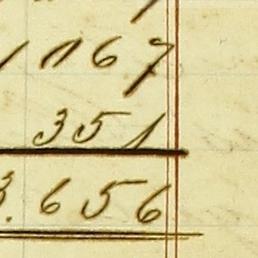 167
351
3.656